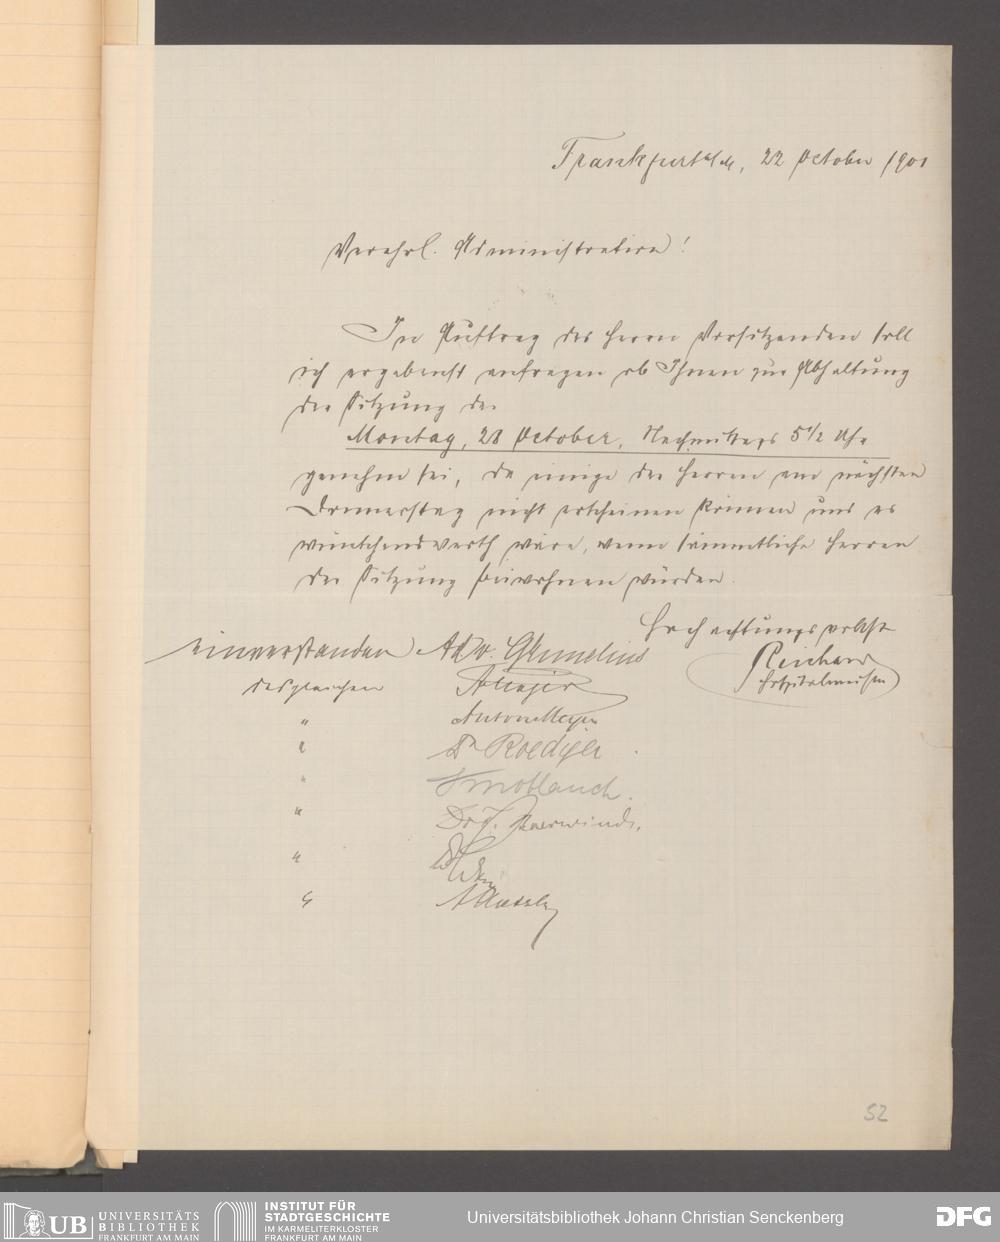 Frankfurt a/M, 22 October 1901
Verehrl. Administration!
Im Auftrag des Herrn Vorsitzenden soll
ich ergebenst anfragen ob Ihnen zur Abhaltung
der Sitzung der
Montag, 28 October, Nachmittags 5 1/2 Uhr
genehm sei, da einige der Herren am nächsten
Donnerstag nicht erscheinen können und es
wünschenswerth wäre, wenn sämmtliche Herren
der Sitzung beiwohnen würden.
Hochachtungsvollst
Reichard
Hospitalmeister
einverstanden Adv.
desgleichen
" Anton Meyer
" Dr Roediger
" Knoblauch.
"
"
"
52
UB UNIVERSITÄTS
BIBLIOTHEK
FRANKFURT AM MAIN
INSTITUT FÜR
STADTGESCHICHTE
IM KARMELITERKLOSTER
FRANKFURT AM MAIN
Universitätsbibliothek Johann Christian Senckenberg
DFG